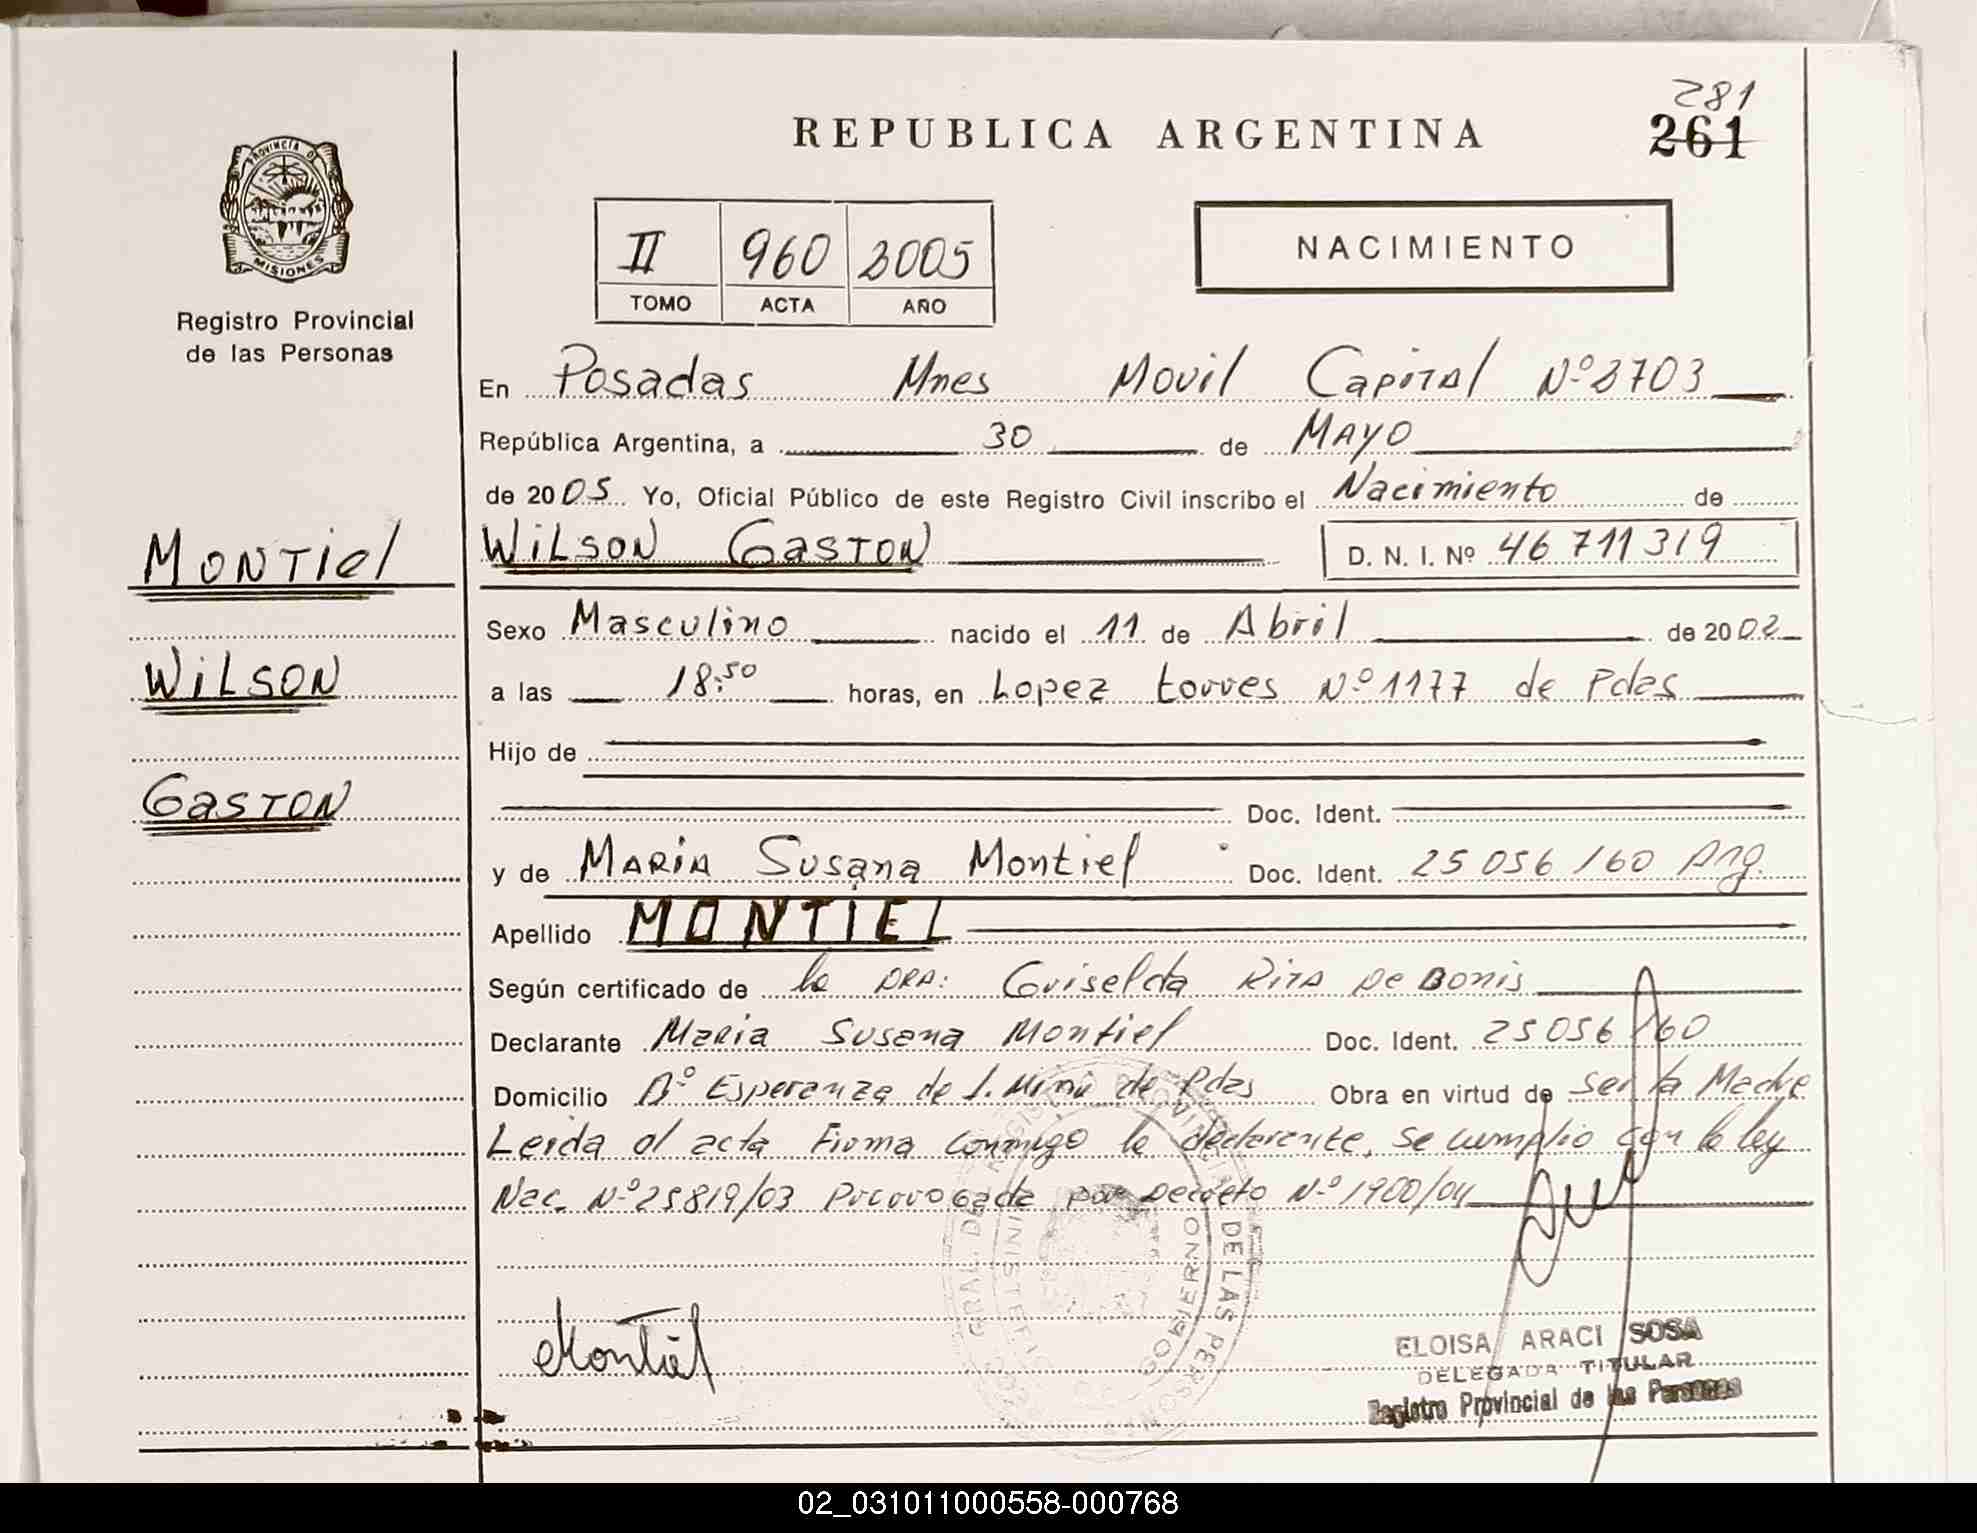 281
REPUBLICA ARGENTINA
261
PROVINCIA DE
MISIONES
Registro Provincial
de las Personas
II 960 2005
TOMO ACTA AÑO
NACIMIENTO
En Posadas Mnes Movil Capital Nº 2703
República Argentina, a 30 de MAYO
de 2005 Yo, Oficial Público de este Registro Civil inscribo el Nacimiento de
MONTIEL
WILSON GASTON D. N. I. Nº 46 711 319
Sexo Masculino nacido el 11 de Abril de 2002
WILSON
a las 18:50 horas, en Lopez torres Nº 1177 de Pdas
Hijo de
GASTON
Doc. Ident.
y de MARIA Susana Montiel Doc. Ident. 25 056 160 Arg.
Apellido MONTIEL
Según certificado de la DRA: Griselda Rita De Bonis
Declarante Maria Susana Montiel Doc. Ident. 25 056 160
Domicilio Bº Esperanza de de Pdas Obra en virtud de ser la Madre
Leida el acta Firma conmigo la declarante, se cumplio con la ley
Nac. Nº 25819/03 Prorrogada por Decreto Nº 1900/04
Montiel
ELOISA ARACI SOSA
DELEGADA TITULAR
Registro Provincial de las Personas
02_031011000558-000768